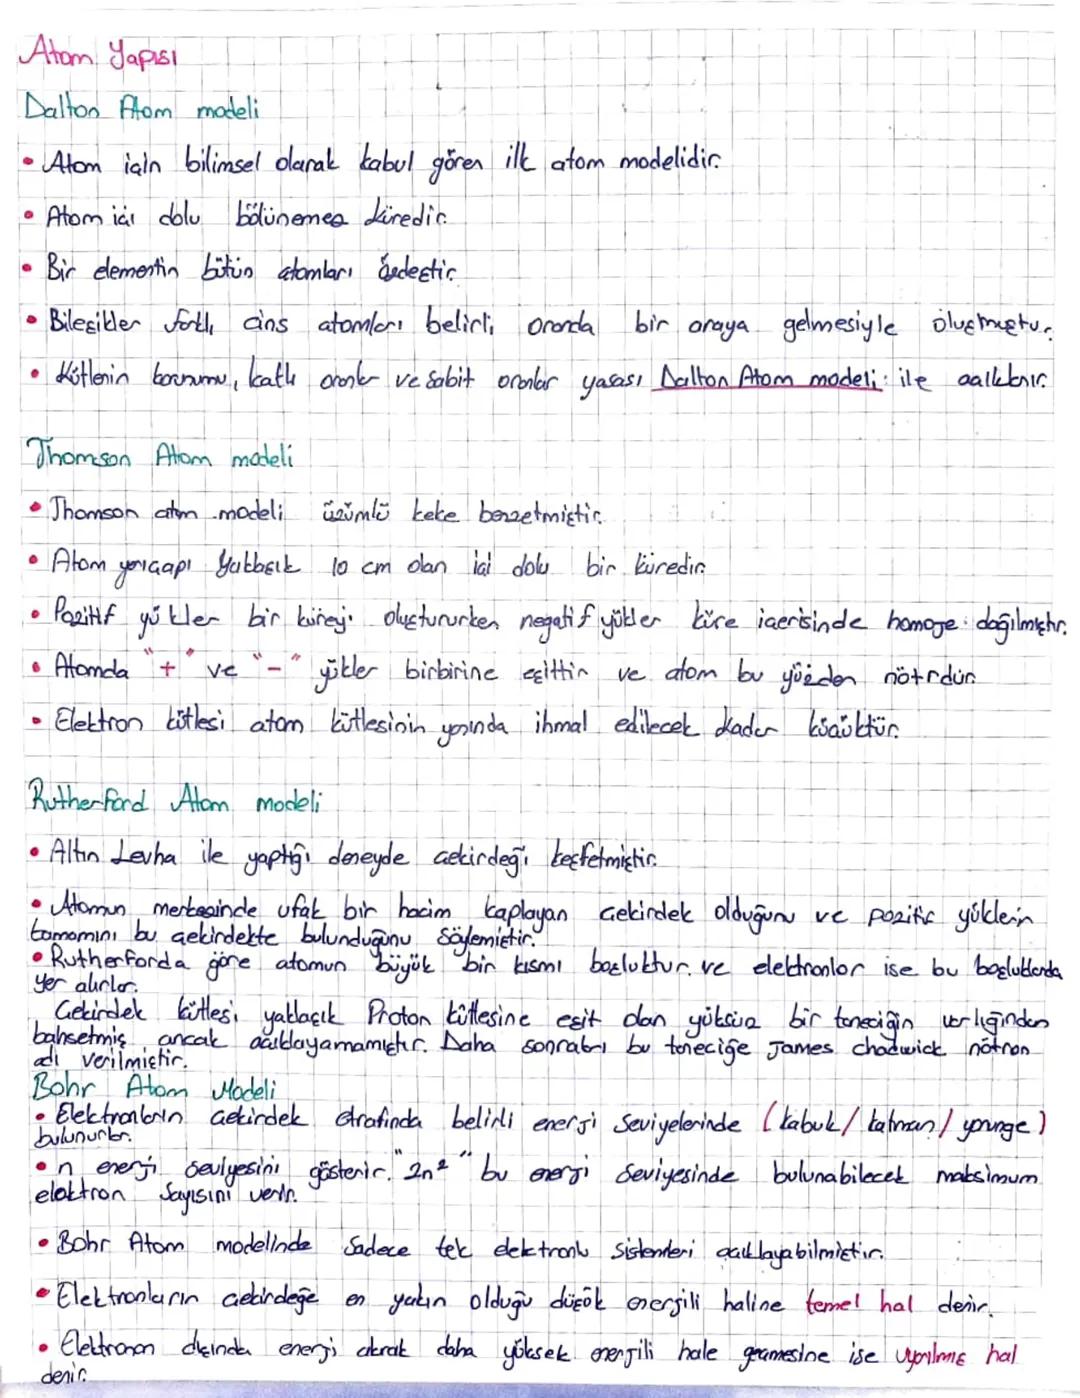 Atom Yapısı
Dalton Atom modeli
• Atom için bilimsel olarak kabul gören ilk atom modelidir.
• Atom içi dolu bölünemez küredir.
• Bir elementin bütün atomları özdeştir.
• Bileşikler farklı cins atomları belirli oranda bir araya gelmesiyle oluşmuştur.
• Kütlenin korunumu, katlı oranlar ve Sabit oranlar yasası Dalton Atom modeli ile açıklanır.
Thomson Atom modeli
• Thomson atom modeli üzümlü keke benzetmiştir.
• Atom yarıçapı Yaklaşık 10 cm olan içi dolu bir küredir.
• Pozitif yükler bir küreyi oluştururken negatif yükler küre içerisinde homoje dağılmıştır.
• Atomda "+" ve "-" yükler birbirine eşittir ve atom bu yüzden nötrdür.
• Elektron kütlesi atom kütlesinin yanında ihmal edilecek kadar küçüktür.
Rutherford Atom modeli
• Altın Levha ile yaptığı deneyde çekirdeği keşfetmiştir.
• Atomun merkezinde ufak bir hacim kaplayan Çekirdek olduğunu ve pozitif yüklerin
tamamını bu çekirdekte bulunduğunu Söylemiştir.
• Rutherforda göre atomun büyük bir kısmı boşluktur. ve elektronlar ise bu boşluklarda
yer alırlar.
Çekirdek kütlesi yaklaşık Proton kütlesine eşit olan yüksüz bir taneciğin varlığından
bahsetmiş ancak açıklayamamıştır. Daha sonraları bu taneciğe James chadwick nötron
adı verilmiştir.
Bohr Atom Modeli
• Elektronların çekirdek etrafında belirli enerji Seviyelerinde (kabuk/ katman/ yörünge)
bulunurlar.
• n enerji seviyesini gösterir. "2n²" bu enerji Seviyesinde bulunabilecek maksimum
elektron Sayısını verir.
• Bohr Atom modelinde Sadece tek elektronlu Sistemleri açıklayabilmiştir.
• Elektronların çekirdeğe en yakın olduğu düşük enerjili haline temel hal denir.
• Elektronon dışında enerji alarak daha yüksek enerjili hale geçmesine ise uyarılmış hal
denir.